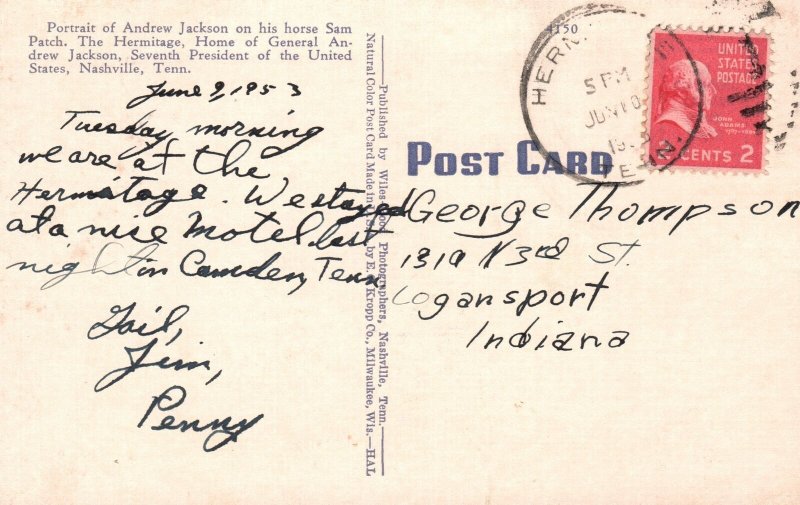 Portrait of Andrew Jackson on his horse Sam
Patch. The Hermitage, Home of General An-
drew Jackson, Seventh President of the United
States, Nashville, Tenn.
June 9, 1953
Tuesday morning
we are at the
Hermatage. We stayed
at a nise Motel last
night in Camden, Tenn
Gail,
Jim,
Penny
—Published by Wiles Photographers, Nashville, Tenn.—
Natural Color Post Card Made in by E. C. Kropp Co., Milwaukee, Wis.—HAL
POST CARD
George Thompson
1319 N 3rd St.
Logansport
Indiana
1150
HERM
5 PM
JUN 10
TENN.
UNITED
STATES
POSTAGE
JOHN
ADAMS
CENTS 2